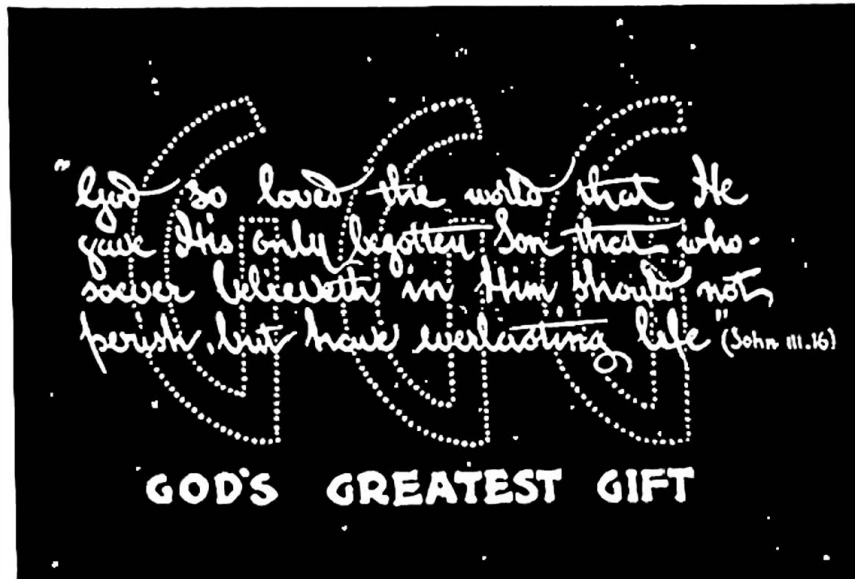 "God so loved the world that He
gave His only begotten Son that who-
soever believeth in Him should not
perish, but have everlasting life" (John III.16)
GOD'S GREATEST GIFT